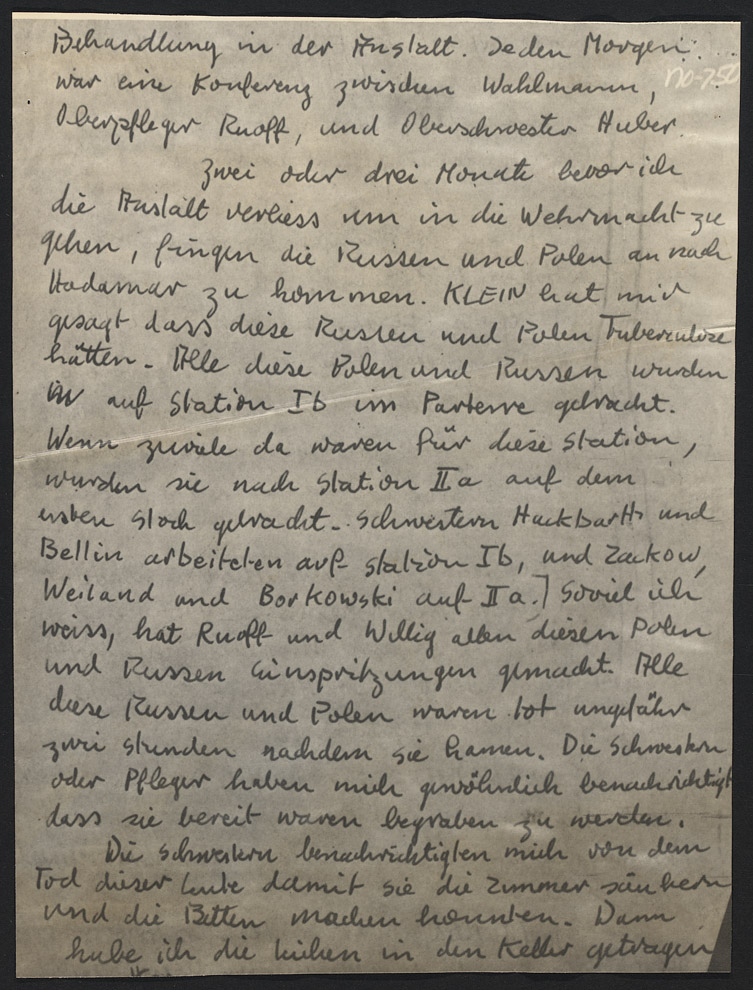 Behandlung in der Anstalt. Jeden Morgen
war eine Konferenz zwischen Wahlmann,
NO-730
Oberpfleger Ruoff, und Oberschwester Huber.
Zwei oder drei Monate bevor ich
die Anstalt verliess um in die Wehrmacht zu
gehen, fingen die Russen und Polen an nach
Hadamar zu kommen. KLEIN hat mir
gesagt dass diese Russen und Polen Tuberculose
hätten. Alle diese Polen und Russen wurden
auf Station Ib im Parterre gebracht.
Wenn zuviele da waren für diese Station,
wurden sie nach Station IIa auf dem
ersten Stock gebracht. Schwestern Hackbarth und
Bellin arbeiteten auf Station Ib, und Zackow,
Weiland und Borkowski auf IIa.] Soviel ich
weiss, hat Ruoff und Willig allen diesen Polen
und Russen Einspritzungen gemacht. Alle
diese Russen und Polen waren tot ungefähr
zwei Stunden nachdem sie kamen. Die Schwestern
oder Pfleger haben mich gewöhnlich benachrichtigt
dass sie bereit waren begraben zu werden.
Die Schwestern benachrichtigten mich von dem
Tod dieser Leute damit sie die Zimmer säubern
und die Betten machen konnten. Dann
habe ich die Leichen in den Keller getragen